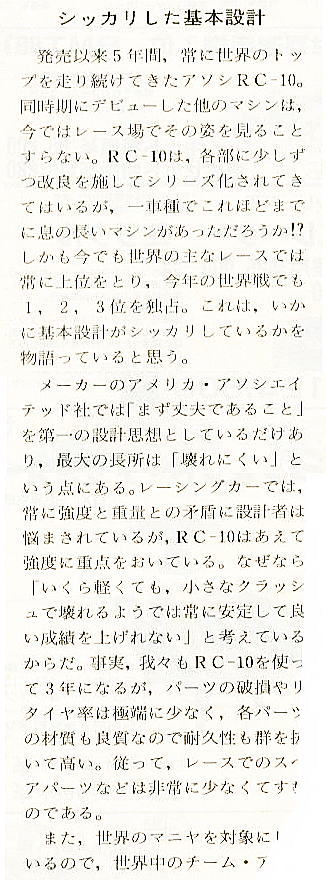 シッカリした基本設計
発売以来5年間，常に世界のトッ
プを走り続けてきたアソシRC-10。
同時期にデビューした他のマシンは，
今ではレース場でその姿を見ること
すらない。RC-10は，各部に少しず
つ改良を施してシリーズ化されてき
てはいるが，一車種でこれほどまで
に息の長いマシンがあっただろうか!?
しかも今でも世界の主なレースでは
常に上位をとり，今年の世界戦でも
1，2，3位を独占。これは，いか
に基本設計がシッカリしているかを
物語っていると思う。
メーカーのアメリカ・アソシエイ
テッド社では「まず丈夫であること」
を第一の設計思想としているだけあ
り，最大の長所は「壊れにくい」と
いう点にある。レーシングカーでは，
常に強度と重量との矛盾に設計者は
悩まされているが，RC-10はあえて
強度に重点をおいている。なぜなら
「いくら軽くても，小さなクラッシ
ュで壊れるようでは常に安定して良
い成績を上げれない」と考えている
からだ。事実，我々もRC-10を使っ
て3年になるが，パーツの破損やリ
タイヤ率は極端に少なく，各パーツ
の材質も良質なので耐久性も群を抜
いて高い。従って，レースでのスペ
アパーツなどは非常に少なくてすむ
のである。
また，世界のマニヤを対象に
いるので，世界中のチーム・